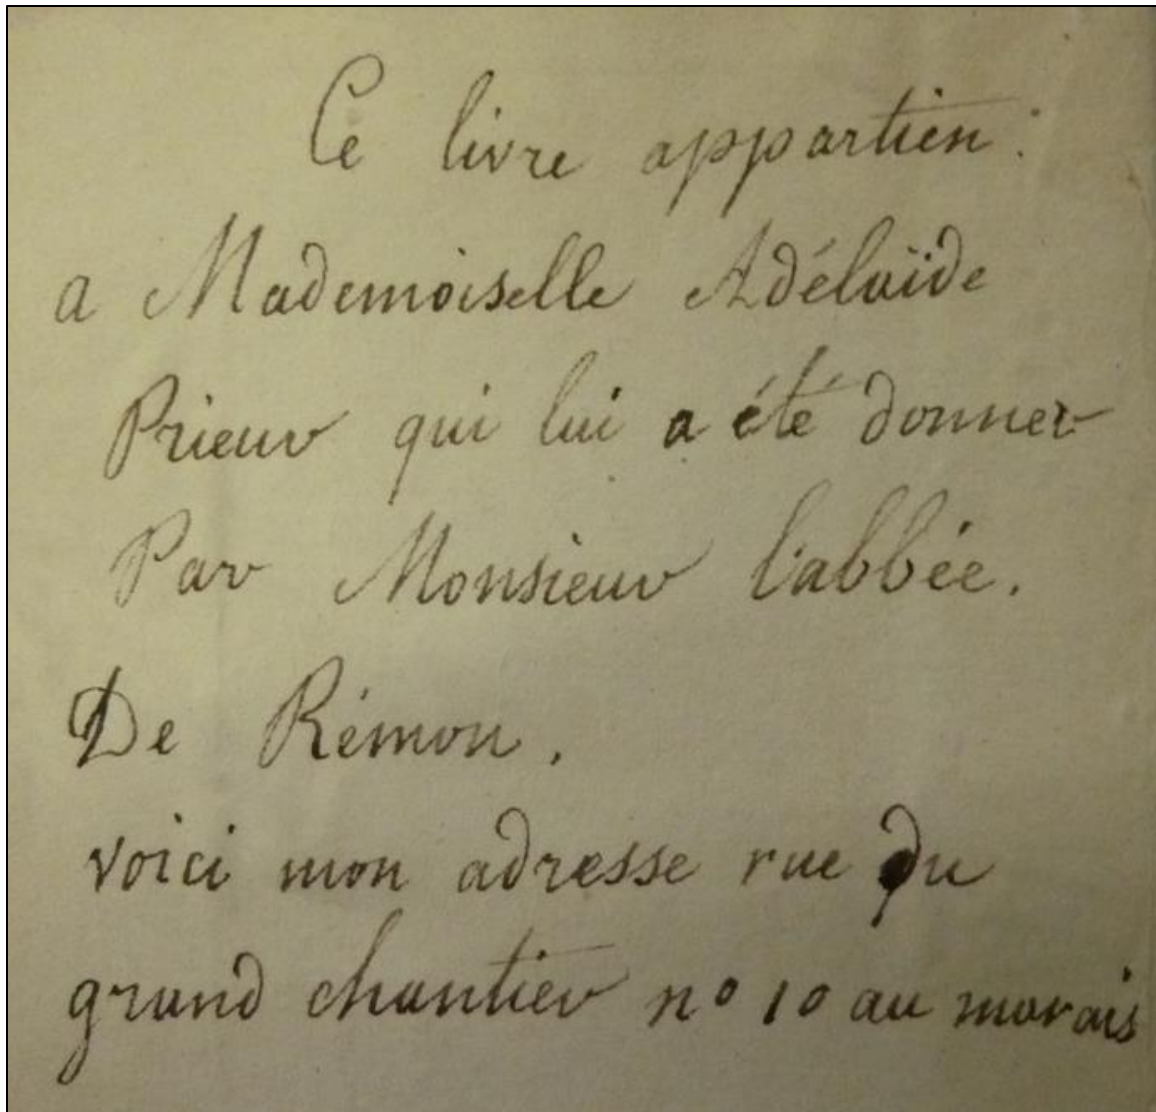 Ce livre appartien :
a Mademoiselle Adélaïde
Prieur qui lui a été donner
Par Monsieur l'abbée.
De Rémon.
voici mon adresse rue du
grand chantier n° 10 au marais